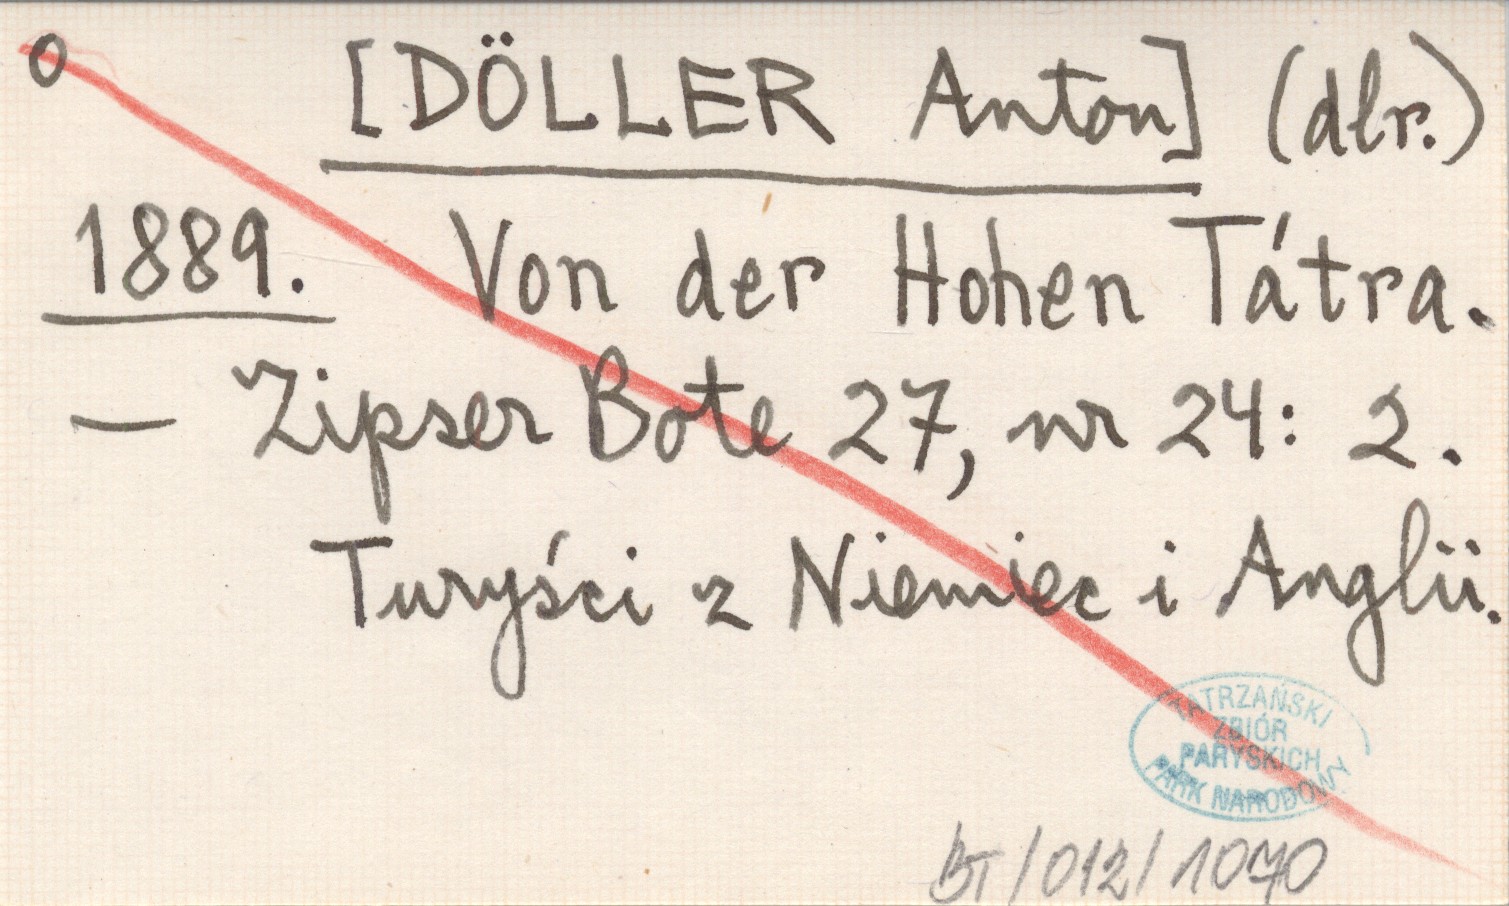 o [DÖLLER Anton] (dlr.)
1889. Von der Hohen Tátra.
— Zipser Bote 27, nr 24: 2.
Turyści z Niemiec i Anglii.
TATRZAŃSKI
ZBIÓR
PARYSKICH
PARK NARODOWY
BT/012/1070